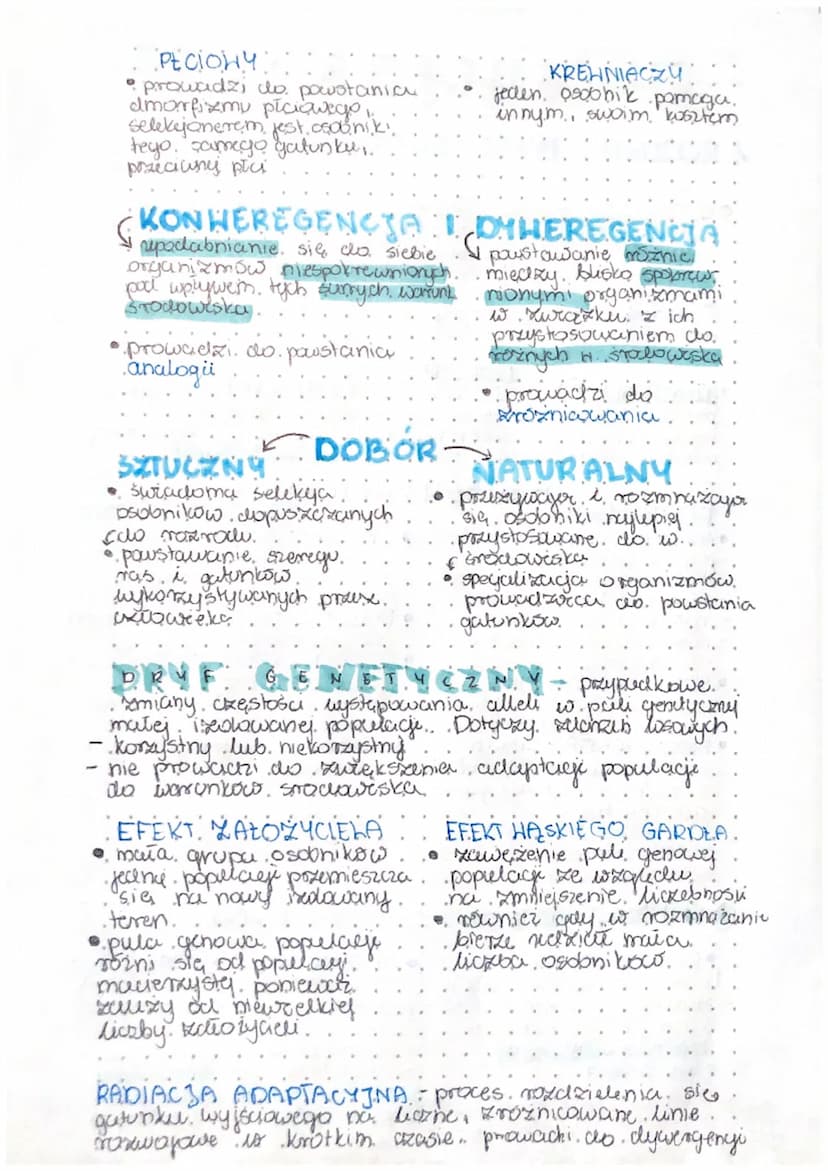 PŁCIOWY
• prowadzi do powstania
dmorfizmu płciowego,
selekcjonerem jest osobnik
tego samego gatunku,
przeciwnej płci
KREWNIACZY
• jeden osobnik pomaga
innym, swoim kosztem
KONWEREGENCJA I DYWEREGENCJA
upodabnianie się do siebie
organizmów niespokrewnionych
pod wpływem tych samych warunk
środowiska
• prowadzi do powstania
analogii
powstawanie różnic
między blisko spokrew
nionymi organizmami
w związku z ich
przystosowaniem do
różnych w. środowiska
• prowadzi do
zróżnicowania
DOBÓR
SZTUCZNY
• świadoma selekcja
osobników dopuszczanych
do rozrodu.
• powstawanie szeregu
ras i gatunków
wykorzystywanych przez
człowieka
NATURALNY
• przeżywają i rozmnażają
się osobniki najlepiej
przystosowane do w.
środowiska
• specjalizacja organizmów
prowadząca do powstania
gatunków
DRYF GENETYCZNY - przypadkowe
zmiany częstości występowania alleli w puli genetycznej
małej izolowanej populacji. Dotyczy zdarzeń losowych.
- korzystny lub niekorzystny
- nie prowadzi do zwiększenia adaptacji populacji
do warunków środowiska
EFEKT ZAŁOŻYCIELA
• mała grupa osobników
jednej populacji przemieszcza
się na nowy izolowany
teren.
• pula genowa populacji
różni się od populacji
macierzystej ponieważ
zależy od niewielkiej
liczby założycieli.
EFEKT WĄSKIEGO GARDŁA
• zawężenie puli genowej
populacji ze względu
na zmniejszenie liczebności
• również gdy w rozmnażanie
bierze udział mała
liczba osobników.
RADIACJA ADAPTACYJNA - proces rozdzielenia się
gatunku wyjściowego na liczne, zróżnicowane linie
rozwojowe w krótkim czasie. prowadzi do dywergencji